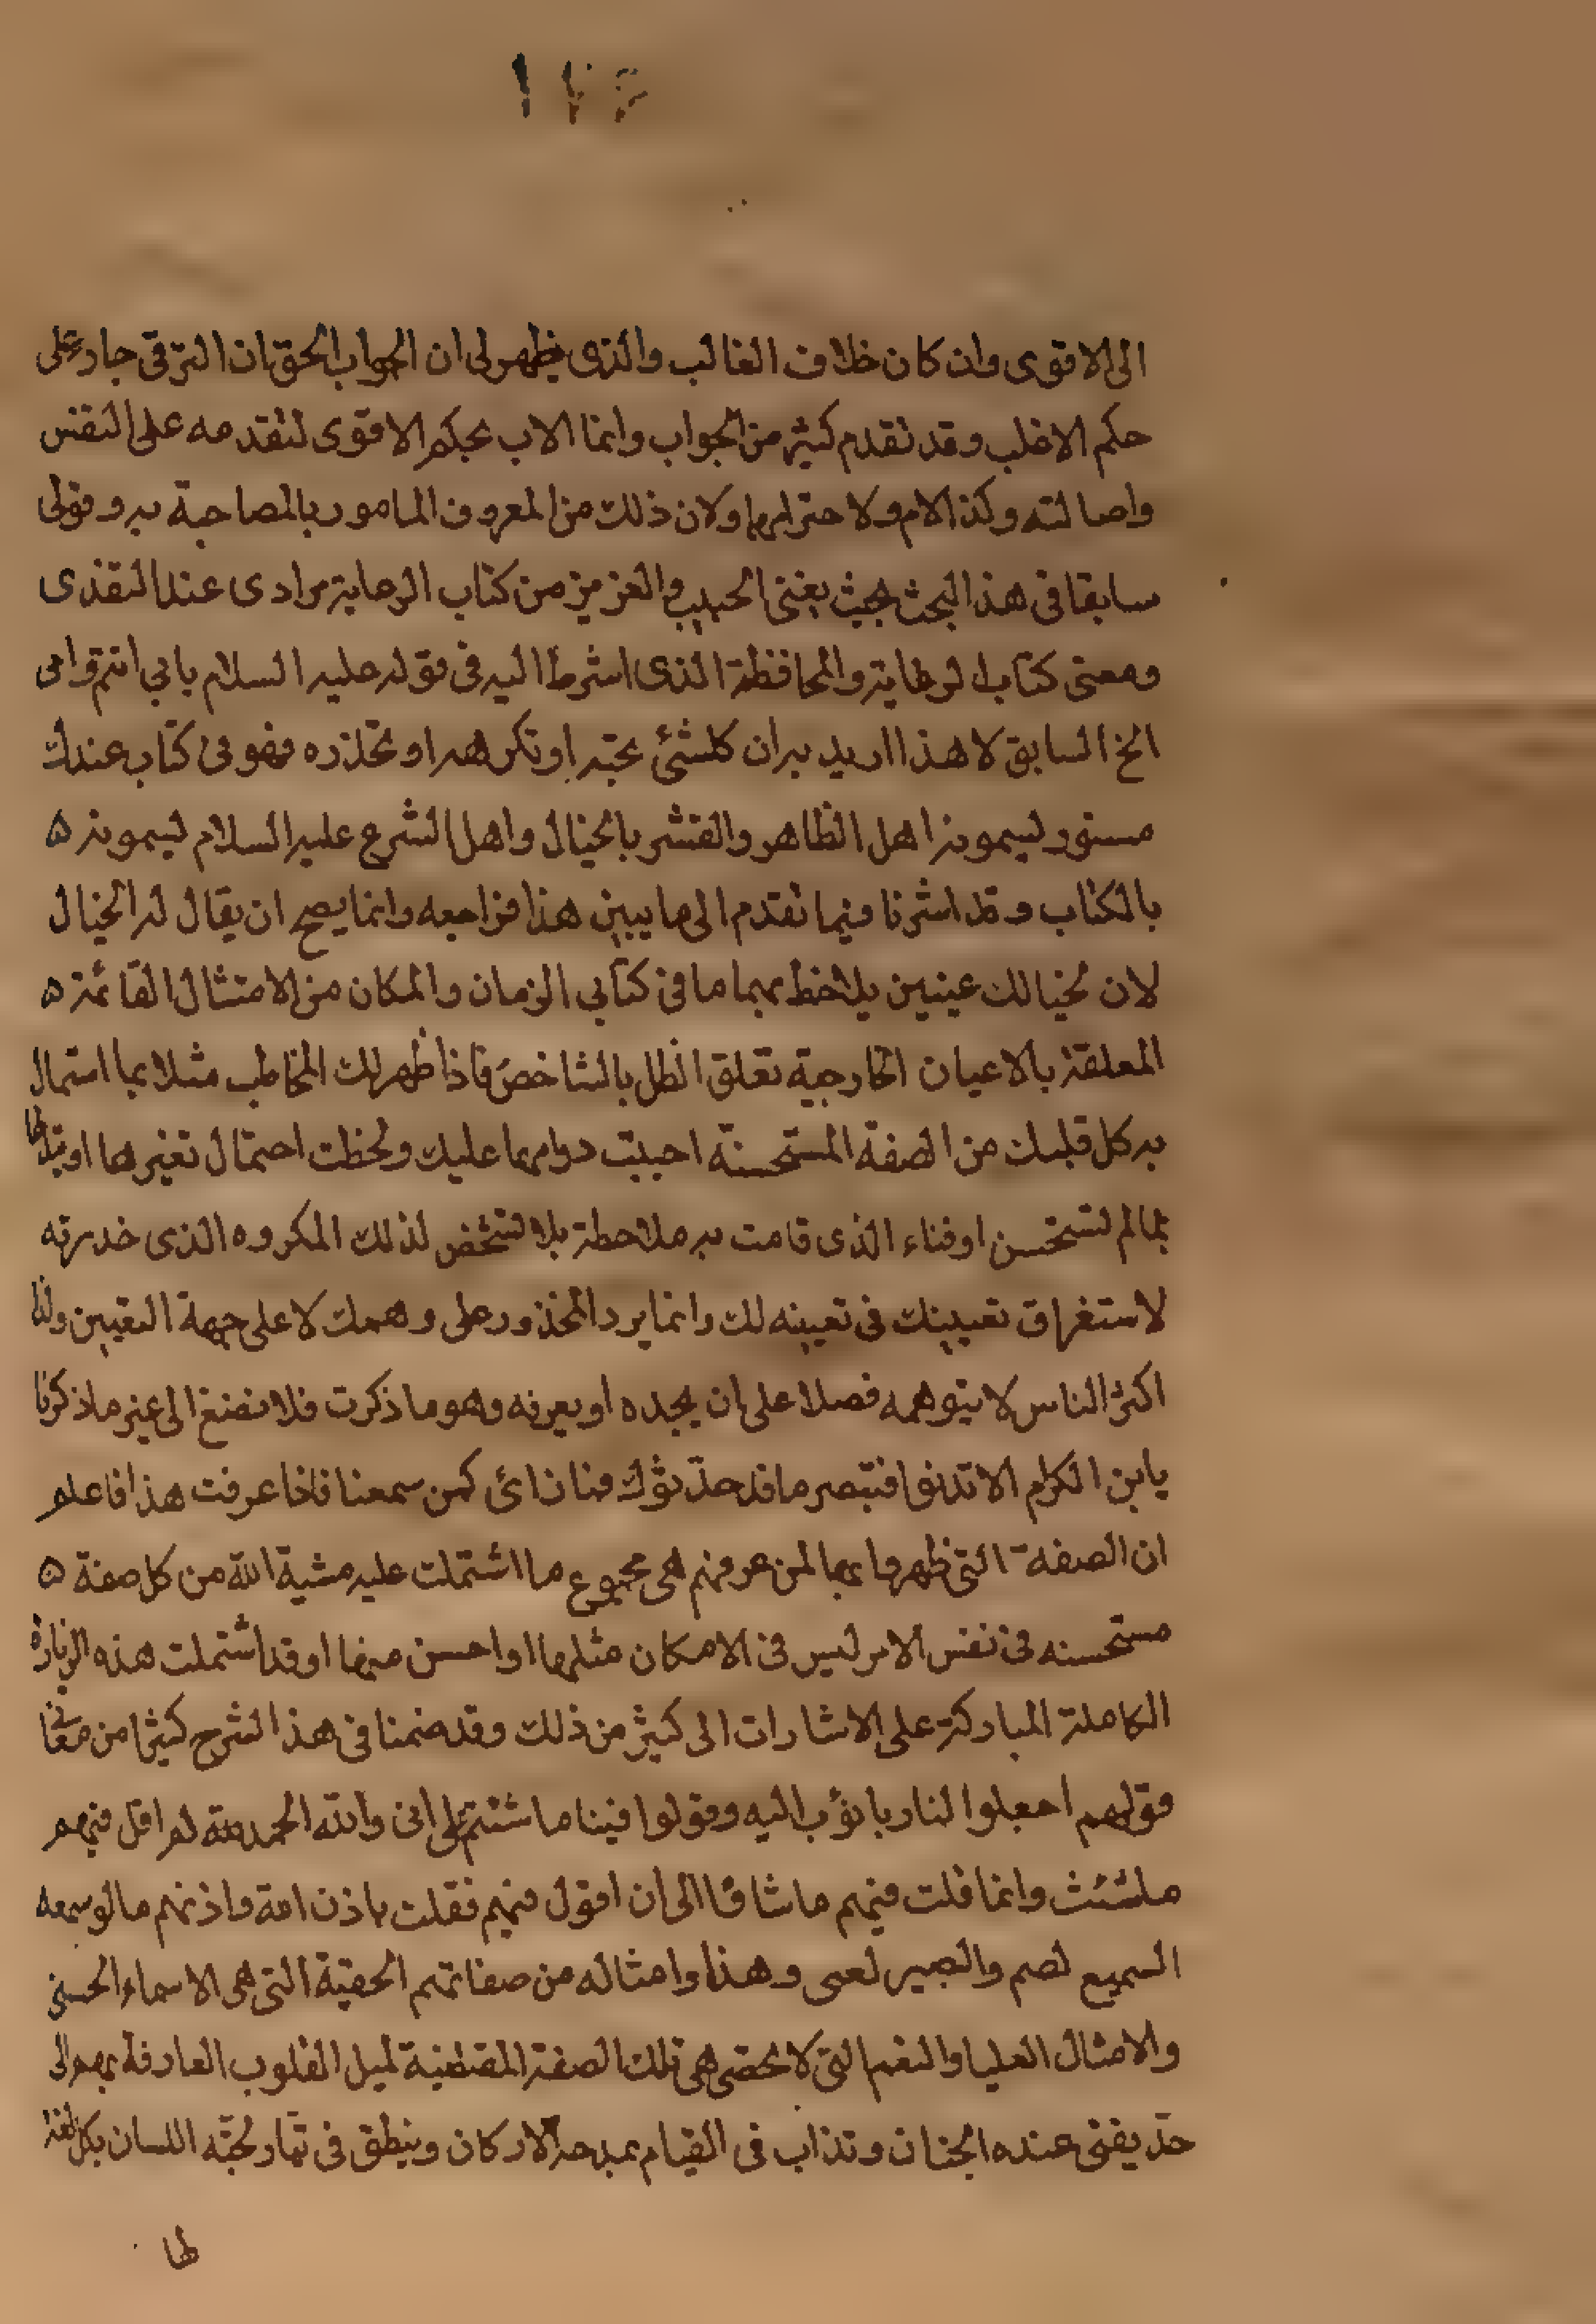 الى الاقوى وان كان خلاف الغالب والذى يظهر لى ان الجواب الحق ان الترقى جار على
حكم الاغلب وقد تقدم كثير من الجواب وانما الاب بحكم الاقوى لتقدمه على النفس
واصالته وكذا الام ولاحترامهما ولان ذلك من المعروف المامور بالمصاحبة به وقولى
سابقا فى هذا البحث بحيث يغنى الحبيب والعزيز من كتاب الرعاية مرادى عند التفدى
ومعنى كتاب الرعاية والمحافظة الذى اشرنا اليه فى قوله عليه السلام بابي انتم وامى
الخ السابق لا هذا اريد به ان كلشئ تحبه او تكرهه او تحذره فهو فى كتاب عندك
مستور ليسمونه اهل الظاهر والقشر بالخيال واهل الشرع عليه السلام ليسمونه ه
بالكتاب وقد اشرنا فيما تقدم الى ما يبين هذا فراجعه وانما يصح ان يقال له الخيال
لان لخيالك عينين يلاحظ بهما ما فى كتابي الزمان والمكان من الامثال القائمة ه
المعلقة بالاعيان الخارجية تعلق الظل بالشاخص فاذا ظهر لك المخاطب مثلا بما استمال
به كل قلبك من الصفة المستحسنة احببت دوامها عليك ولحظت احتمال تغيرها او تبدلها
بما لم تستحسن او فناء الذى قامت به ملاحظة بلا تشخص لذلك المكروه الذى حذرته
لاستغراق تعيينك فى تعينه لك وانما يرد المحذور على وهمك لا على جهة التعيين ولذا
اكثر الناس لا يتوهمه فضلا على ان يجده او يعرفه وهو ما ذكرت فلا تصغ الى غير ما ذكرنا
يابن الكرام الا تدنو فتبصر ما قد حدثوك فما راءى كمن سمعنا فاذا عرفت هذا فاعلم
ان الصفة التى ظهروا بها لمن عرفهم هى مجموع ما اشتملت عليه مشية الله من كل صفة ه
مستحسنه فى نفس الامر ليس فى الامكان مثلها او احسن منها او قد اشتملت هذه الزيارة
الكاملة المباركة على الاشارات الى كثير من ذلك وقد ضمنا فى هذا الشرح كثيرا من معانى
قولهم اجعلوا لنا ربا نؤب اليه وقولوا فينا ما شئتم على انى والله الحمد لله لم اقل فيهم
ما شئت وانما قلت فيهم ما شاؤا الى ان اقول فيهم فقلت باذن الله واذنهم ما لو سمعه
السميع لصم والبصير لعمى وهذا وامثاله من صفاتهم الحقية التى هى الاسماء الحسنى
والامثال العليا والنعم التى لا تحصى هى تلك الصفة المقتضية لميل القلوب العارفة بهم الى
حد يفنى عنده الجنان وتذاب فى القيام بمدحه الاركان وينطق فى محبته اللسان بكل لغة
لها